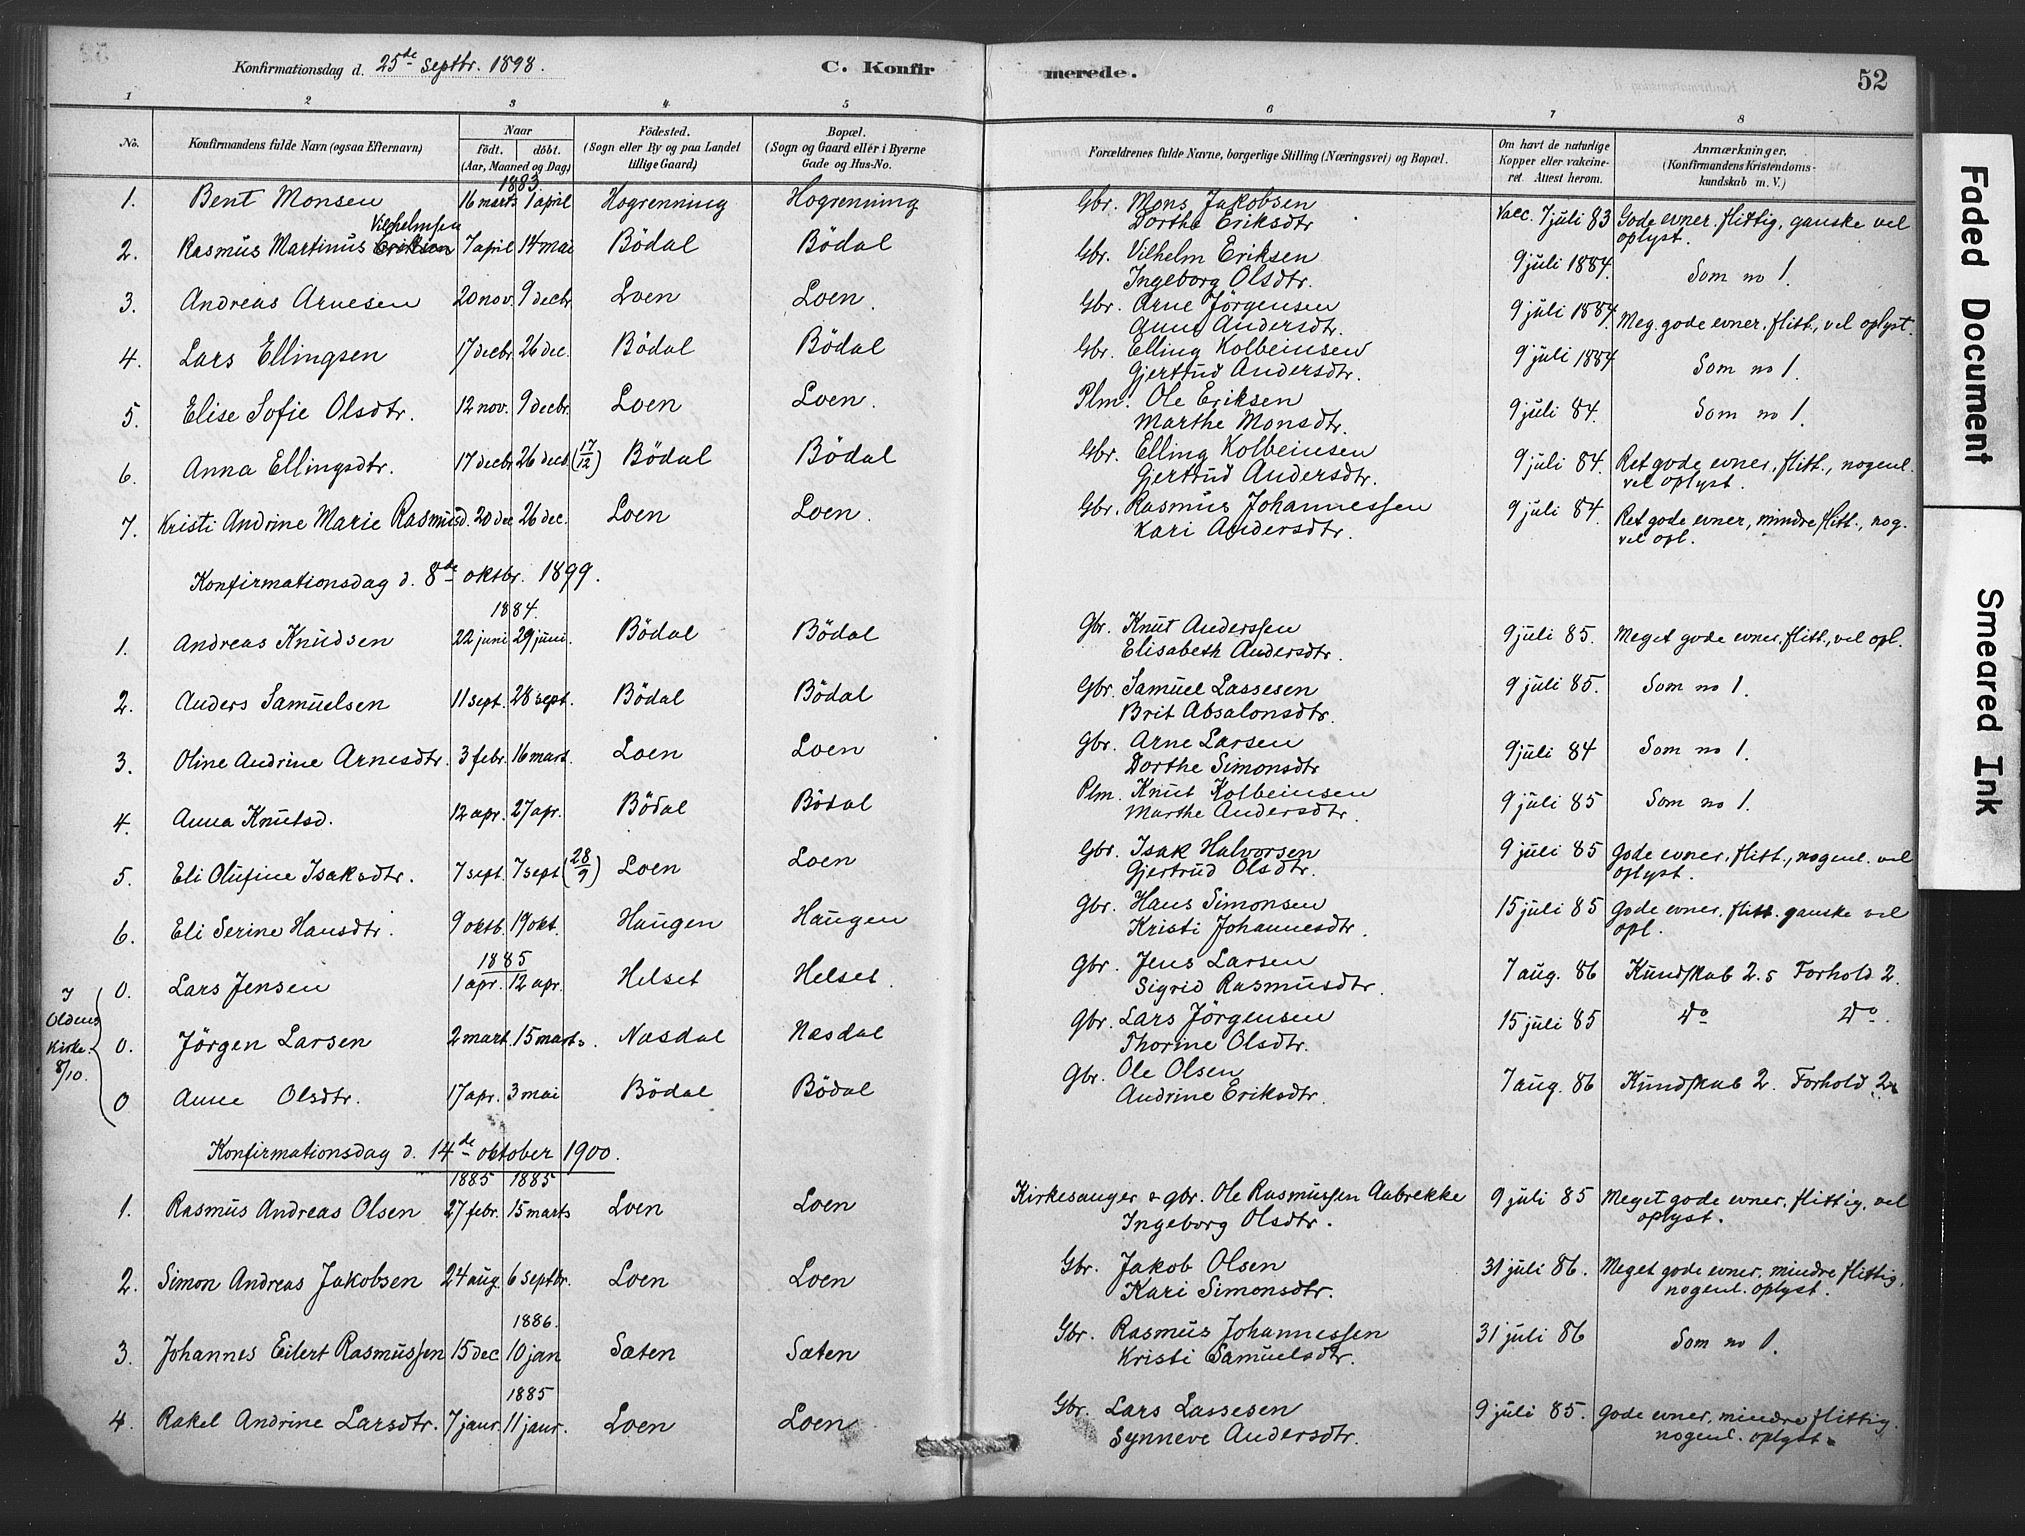 Konfirmationsdag d. 25de septbr. 1898. C. Konfirmerede. 52
1 2 3 4 5 6 7 8
No. Konfirmandens fulde Navn (ogsaa Efternavn) Naar födt. döbt. (Aar, Maaned og Dag) Födested. (Sogn eller By og paa Landet tillige Gaard) Bopæl. (Sogn og Gaard eller i Byerne Gade og Hus-No. Forældrenes fulde Navne, borgerlige Stilling (Næringsvei) og Bopæl. Om havt de naturlige Kopper eller vakcineret. Attest herom. Anmærkninger. (Konfirmandens Kristendomskundskab m. V.)
1883.
1. Bent Monsen 16 marts 1 april Hogrenning Hogrenning Gbr. Mons Jakobsen Vacc. 7 juli 83 Gode evner, flittig, ganske vel
Dorthe Eriksdtr oplyst.
Vilhelmsen
2. Rasmus Martinus Eriksen 7 april 14 mai Bödal Bödal Gbr. Vilhelm Eriksen 9 juli 1884. Som no 1.
Ingeborg Olsdtr.
3. Andreas Arnesen 20 nov. 9 decbr Loen Loen. Gbr. Arne Jörgensen 9 juli 1884. Meg. gode evner, flitt., vel oplyst.
Anne Andersdtr.
4. Lars Ellingsen 17 decbr 26 dec. Bödal Bödal Gbr. Elling Kolbeinsen 9 juli 1884 Som no 1.
Gjertrud Andersdtr.
5. Elise Sofie Olsdtr. 12 nov. 9 decbr. Loen Loen. Plm. Ole Eriksen 9 juli 84. Som no 1.
Marthe Monsdtr.
6. Anna Ellingsdtr. 17 decbr 26 decb. (17/12) Bödal Bödal Gbr. Elling Kolbeinsen 9 juli 84. Ret gode evner, flitt., nogenl.
Gjertrud Andersdtr. vel oplyst.
7. Kristi Andrine Marie Rasmusd. 20 dec 26 dec. Loen Loen. Gbr. Rasmus Johannessen 9 juli 84. Ret gode evner, mindre flitt., nog.
Kari Andersdtr. vel opl.
Konfirmationsdag d. 8de oktbr. 1899.
1884.
1. Andreas Knudsen 22 juni 29 juni. Bödal Bödal Gbr. Knut Anderssen 9 juli 85. Meget gode evner, flitt., vel opl.
Elisabeth Andersdtr.
2. Anders Samuelsen 11 sept. 28 sept. Bödal Bödal Gbr. Samuel Lassesen 9 juli 85. Som no 1.
Brit Absalonsdtr.
3. Oline Andrine Arnesdtr. 3 febr. 16 mars. Loen Loen Gbr. Arne Larsen 9 juli 84 Som no 1.
Dorthe Simonsdtr
4. Anna Knutsd. 12 apr. 27 apr. Bödal Bödal Plm. Knut Kolbeinsen 9 juli 85 Som no 1.
Marthe Andersdtr.
5. Eli Olufine Isaksdtr. 7 sept. 7 sept (28/9) Loen Loen Gbr. Isak Halvorsen 9 juli 85 Gode evner, flitt., nogenl. vel
Gjertrud Olsdtr. oplyst.
6. Eli Serine Hansdtr. 9 oktb. 19 okt. Haugen Haugen Gbr. Hans Simonsen 15 juli 85 Gode evner, flitt. ganske vel
Kristi Johannesdtr. opl.
1885
I Oldens Kirke. 8/10.
0. Lars Jensen 1 apr. 12 apr. Helset Helset. Gbr. Jens Larsen 7 aug. 86 Kundskab 2.5 Forhold 2.
Sigrid Rasmusdtr.
0. Jörgen Larsen 2 mart. 15 marts. Næsdal Næsdal Gbr. Lars Jörgensen 15 juli 85 do do.
Thorine Olsdtr.
0 Anne Olsdtr. 17 apr. 3 mai Bödal Bödal Gbr. Ole Olsen 7 aug. 86 Kundskab 2. Forhold 2.
Andrine Eriksdtr.
Konfirmationsdag d. 14de oktober 1900.
1885 1885
1. Rasmus Andreas Olsen 27 febr. 15 marts Loen Loen Kirkesanger & gbr. Ole Rasmussen Aabrekke 9 juli 85 Meget gode evner, flittig, vel
Ingeborg Olsdtr. oplyst.
2. Simon Andreas Jakobsen 24 aug. 6 septbr. Loen Loen Gbr. Jakob Olsen 31 juli 86. Meget gode evner, mindre flittig,
Kari Simonsdtr. nogenl. oplyst.
1886.
3. Johannes Eilert Rasmussen 15 dec 10 jan Sæten Sæten Gbr. Rasmus Johannessen 31 juli 86 Som no 1.
Kristi Samuelsdtr.
1885
4. Rakel Andrine Larsdtr. 7 janr. 11 janr. Loen Loen Gbr. Lars Lassesen 9 juli 85. Gode evner, mindre flittig,
Synneve Andersdtr. nogenl. oplyst.
Faded Document
Smeared Ink